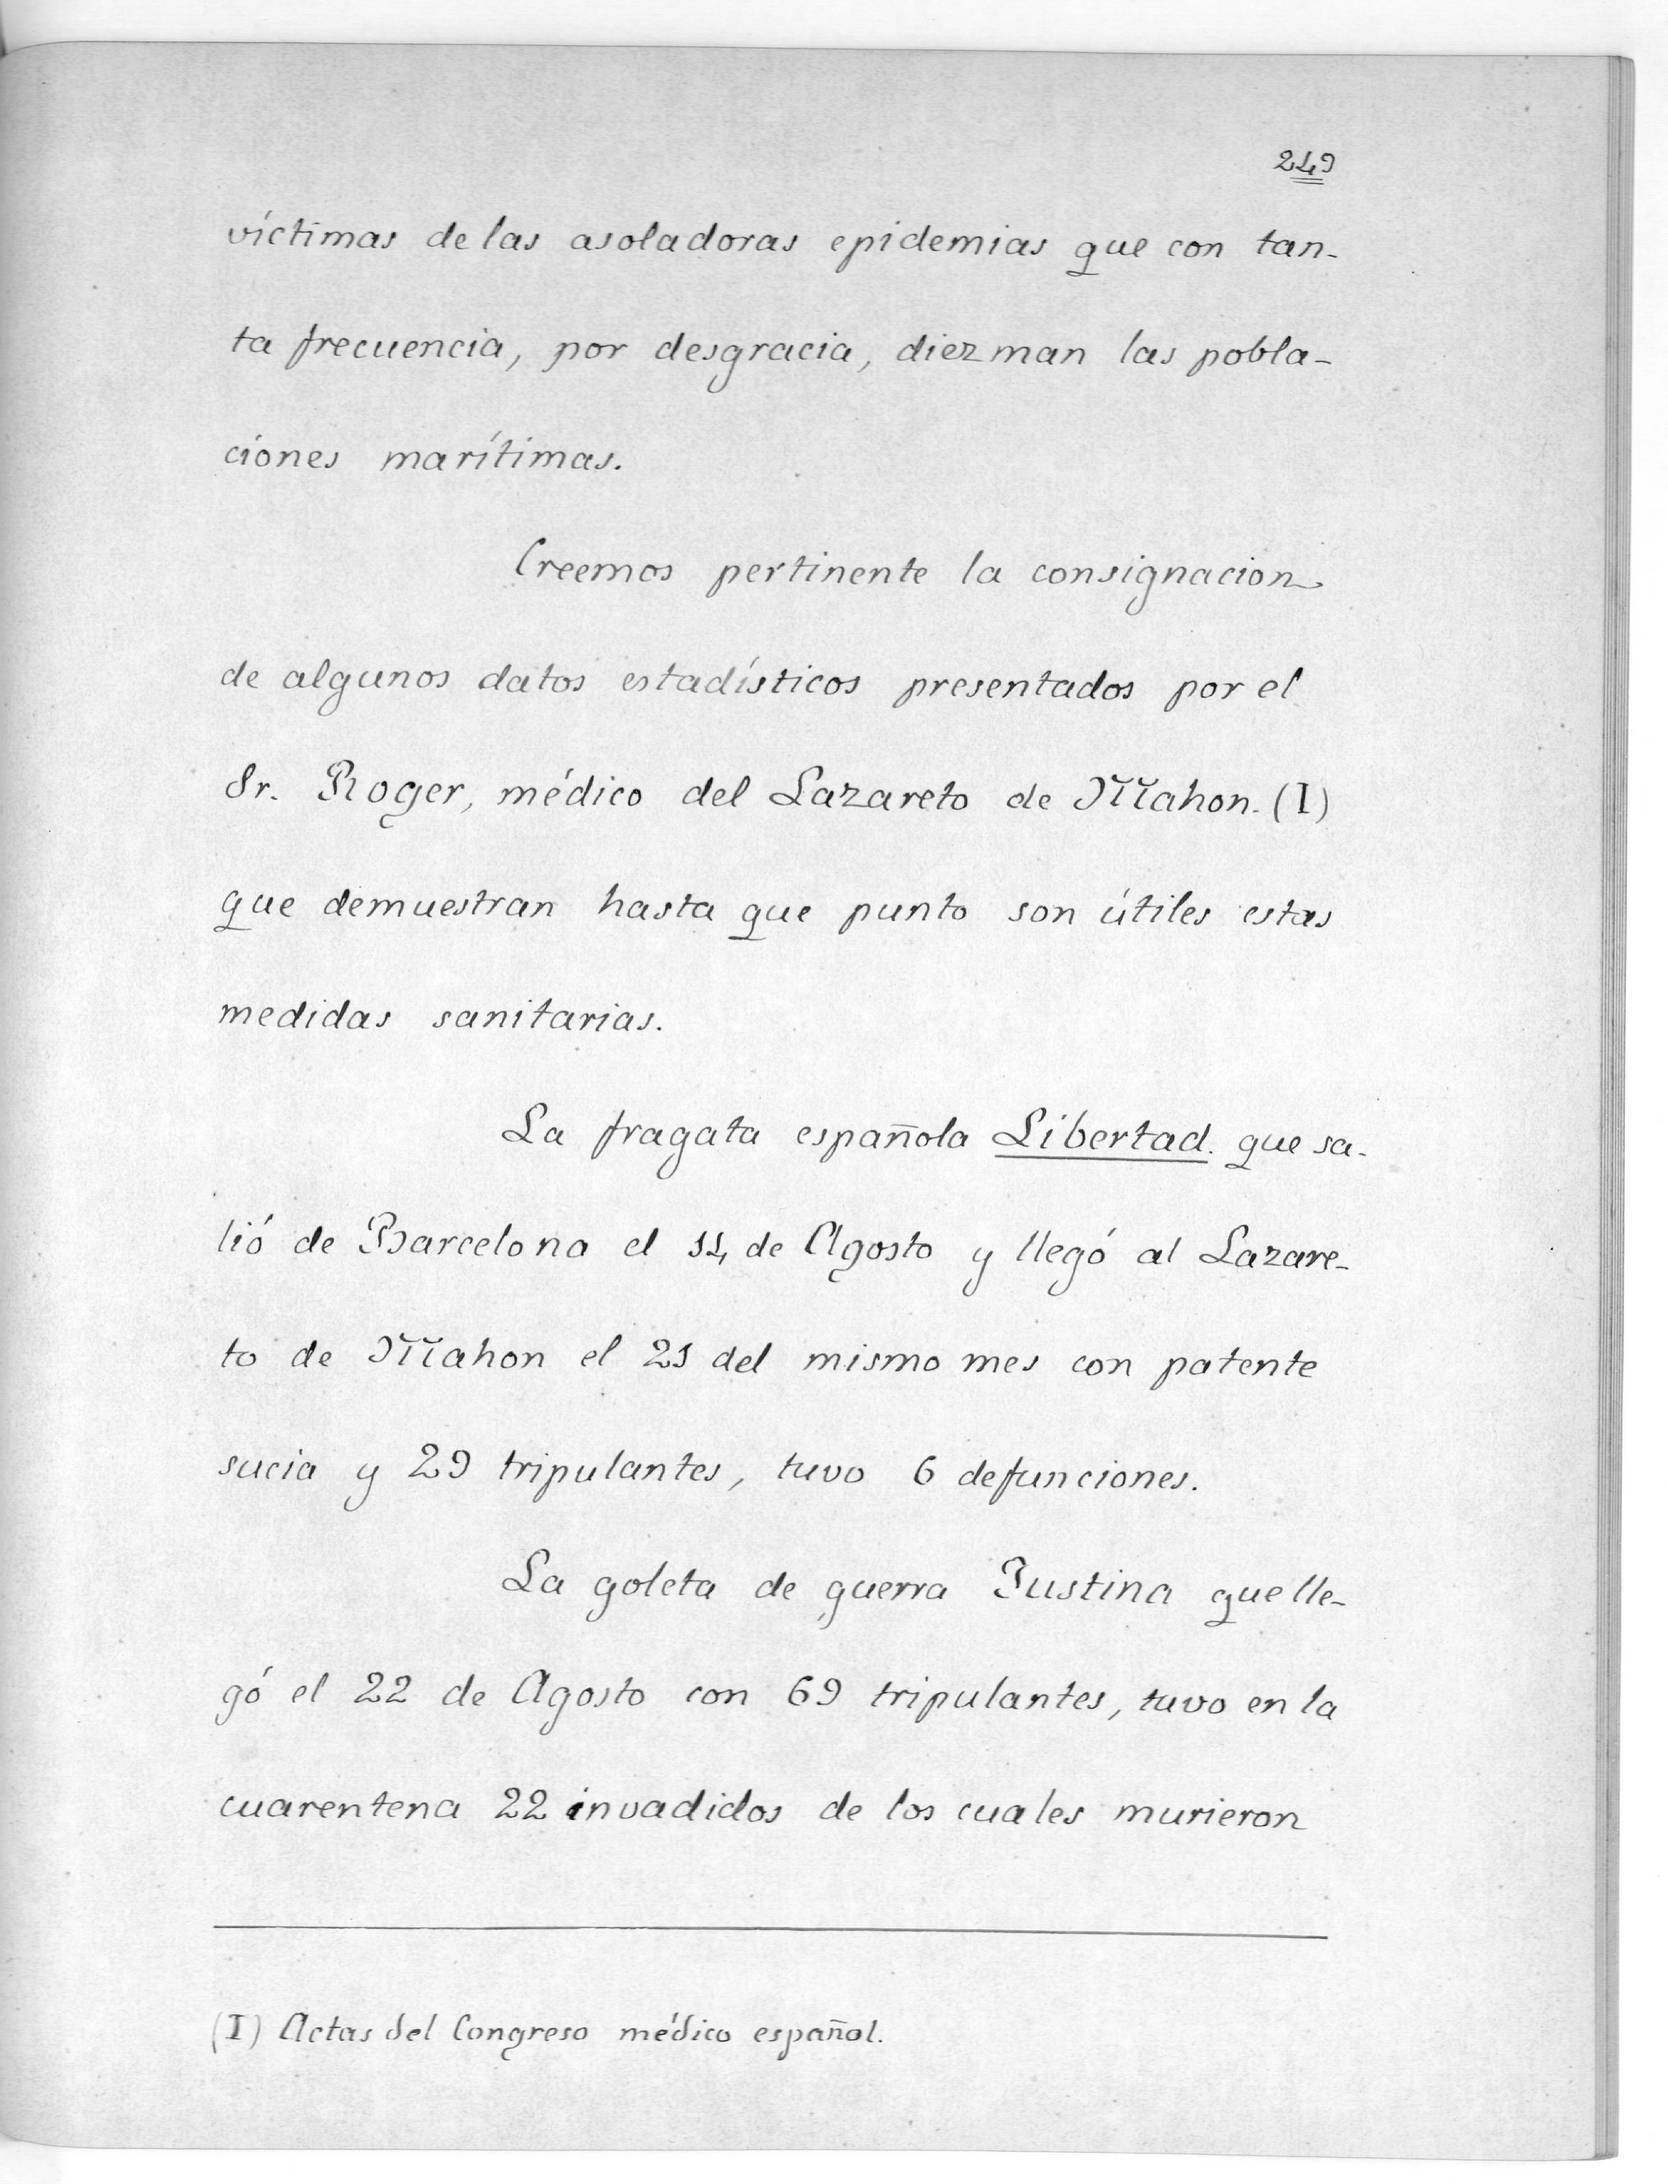 249
víctimas de las asoladoras epidemias que con tan-
ta frecuencia, por desgracia, diezman las pobla-
ciones marítimas.
Creemos pertinente la consignacion
de algunos datos estadísticos presentados por el
Sr. Roger, médico del Lazareto de Mahon. (I)
que demuestran hasta que punto son útiles estas
medidas sanitarias.
La fragata española Libertad. que sa-
lió de Barcelona el 14 de Agosto y llegó al Lazare-
to de Mahon el 21 del mismo mes con patente
sucia y 29 tripulantes, tuvo 6 defunciones.
La goleta de guerra Justina que lle-
gó el 22 de Agosto con 69 tripulantes, tuvo en la
cuarentena 22 invadidos de los cuales murieron
(I) Actas del Congreso médico español.